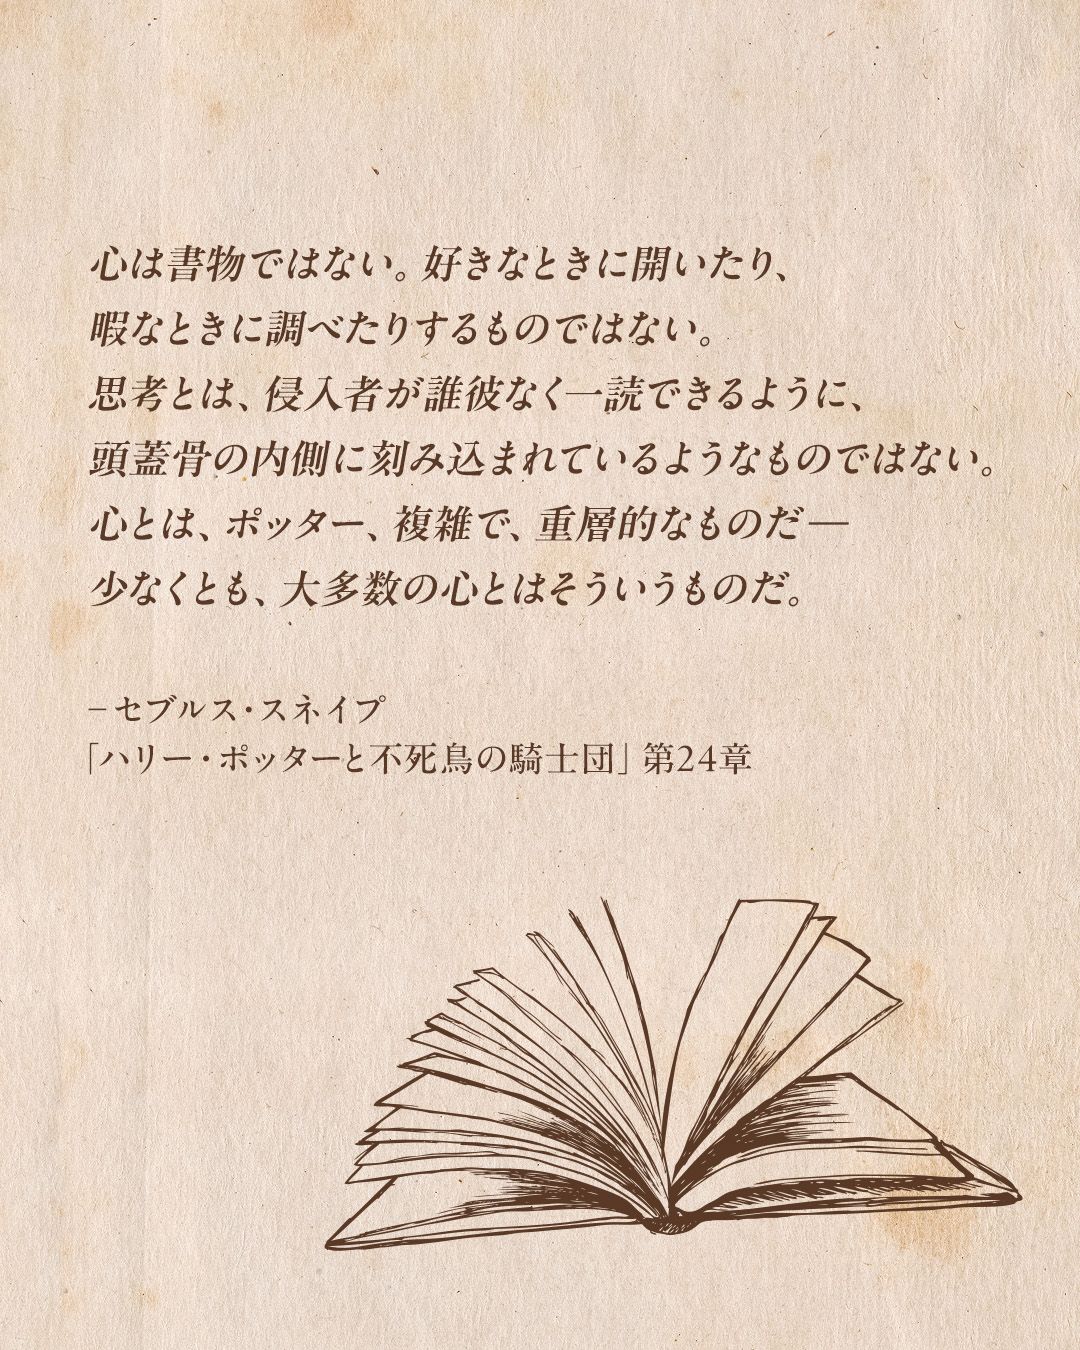 心は書物ではない。好きなときに開いたり、
暇なときに調べたりするものではない。
思考とは、侵入者が誰彼なく一読できるように、
頭蓋骨の内側に刻み込まれているようなものではない。
心とは、ポッター、複雑で、重層的なものだ―
少なくとも、大多数の心とはそういうものだ。
–セブルス・スネイプ
「ハリー・ポッターと不死鳥の騎士団」第24章